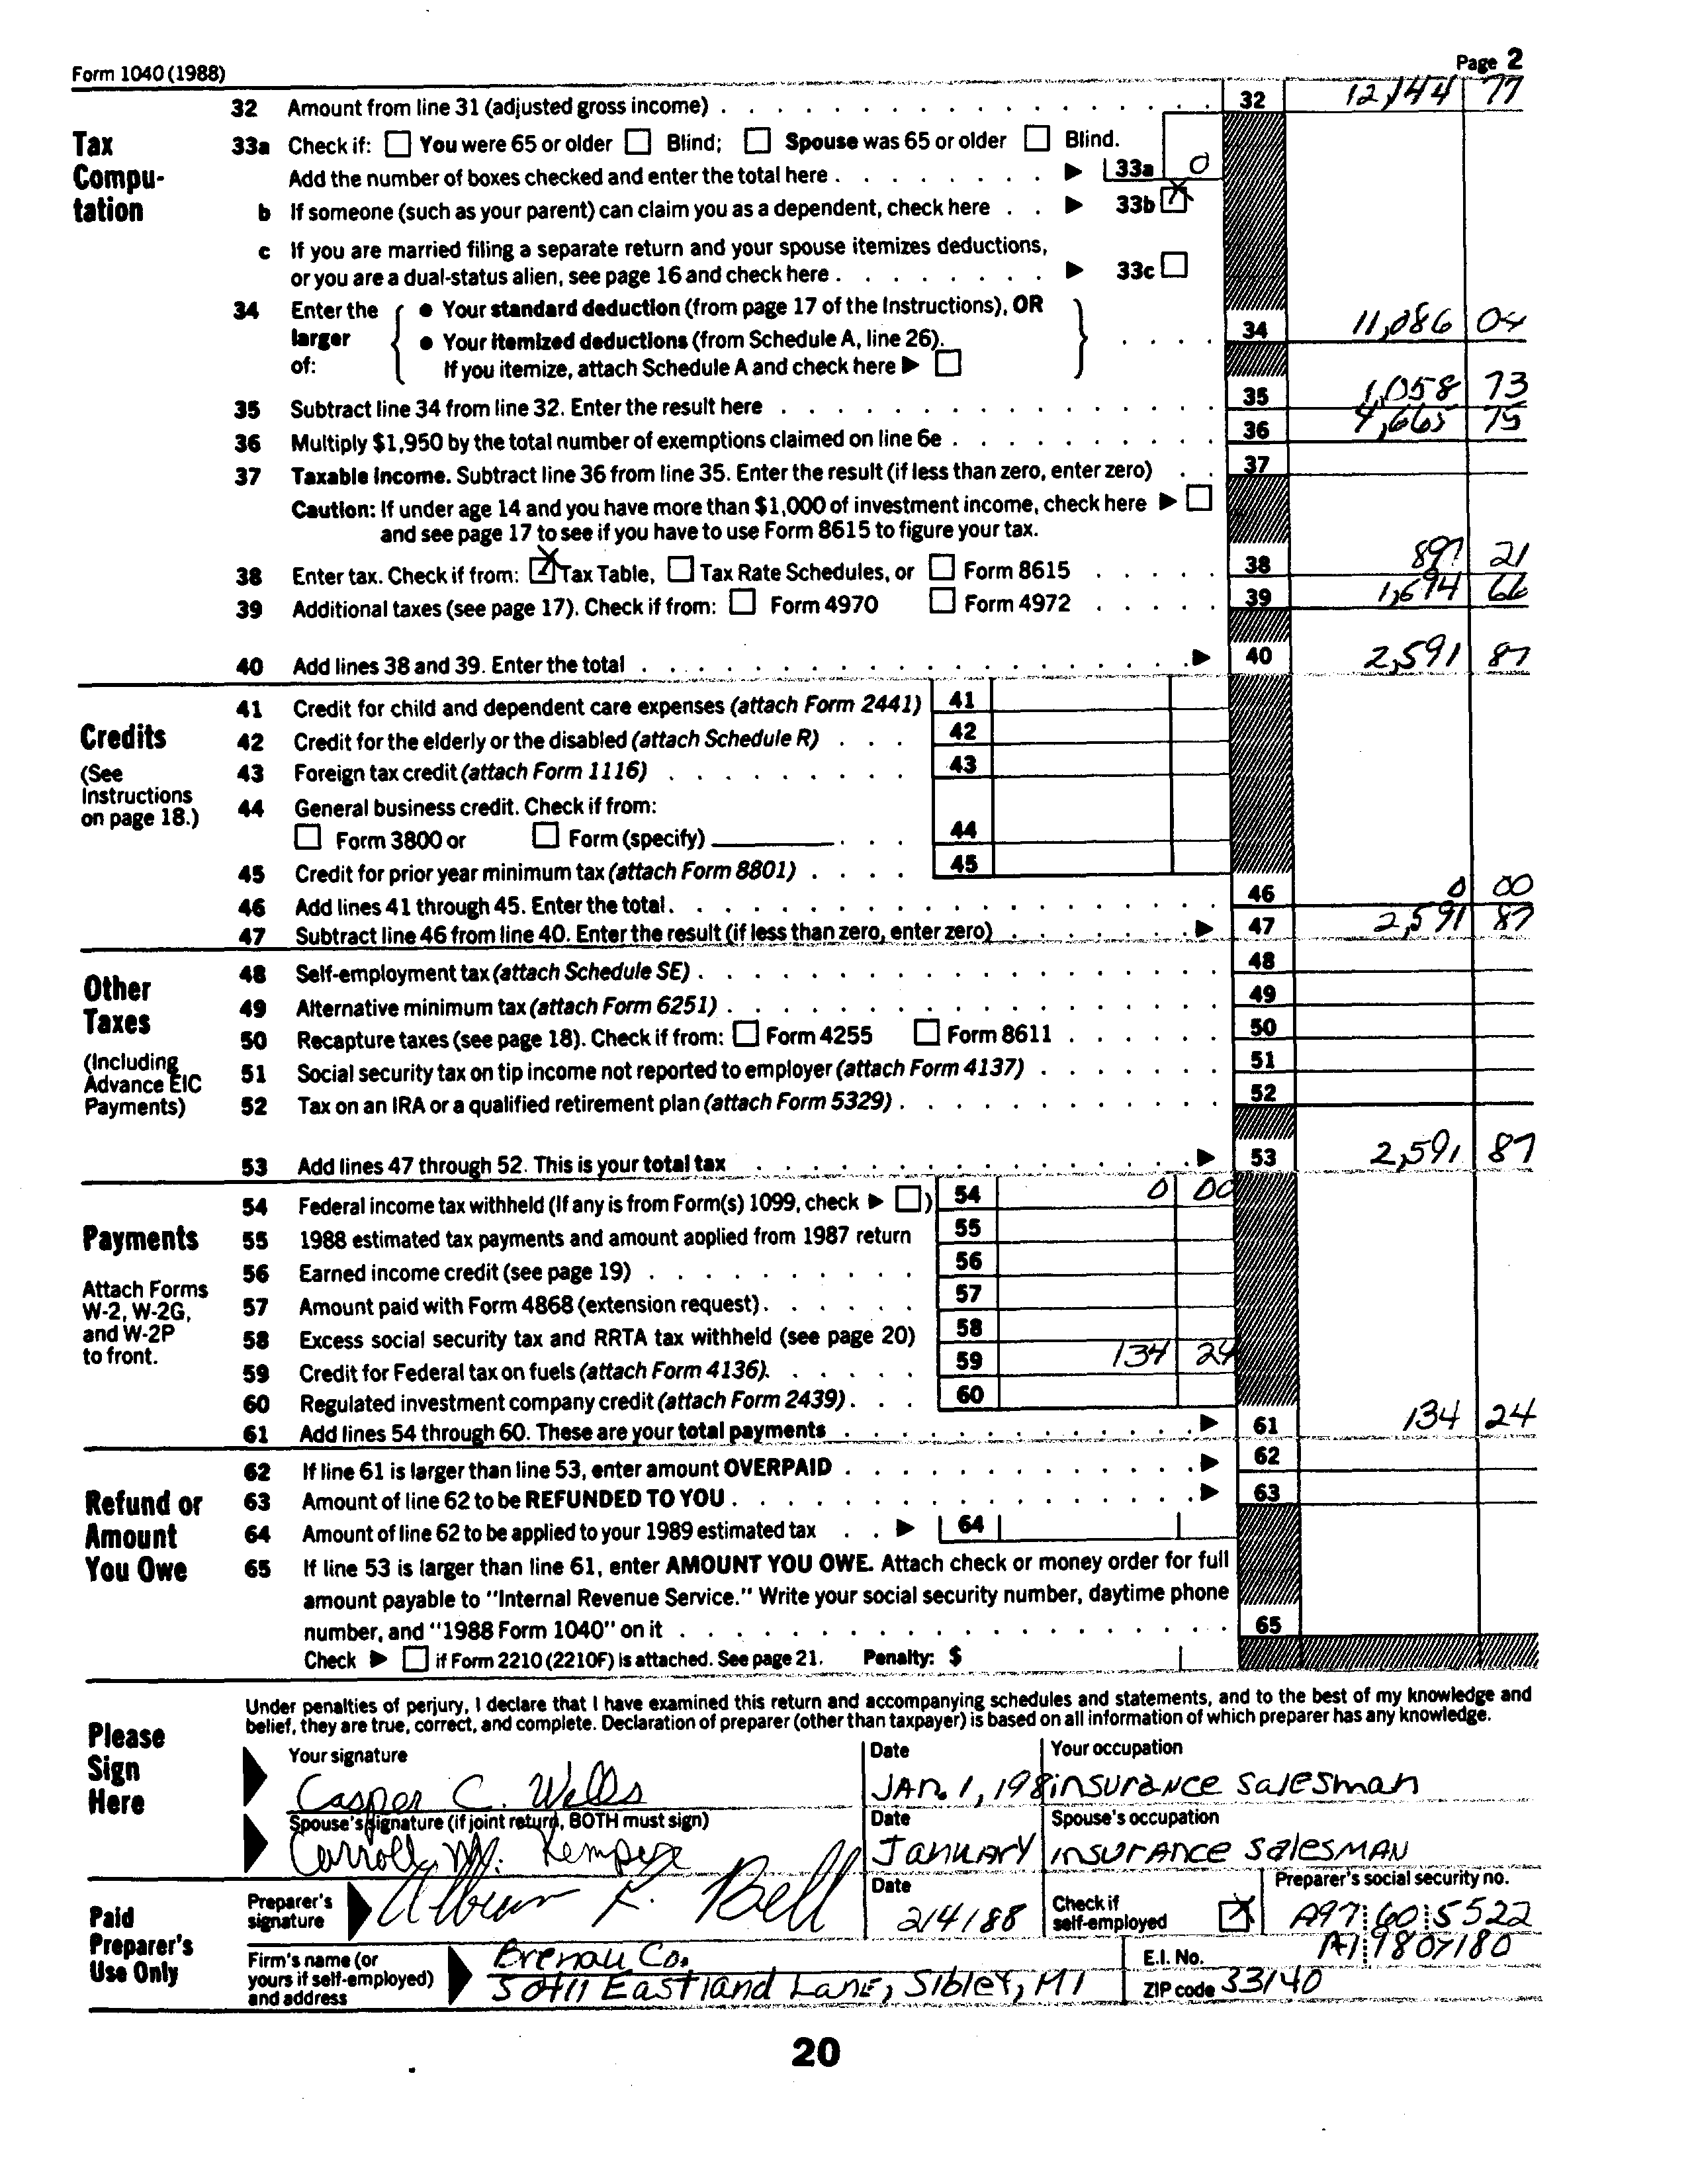 Form 1040 (1988)
Page 2
32 Amount from line 31 (adjusted gross income) . . . 32 12,144 77
Tax Computation
33a Check if: You were 65 or older Blind; Spouse was 65 or older Blind.
Add the number of boxes checked and enter the total here . . . 33a 0
b If someone (such as your parent) can claim you as a dependent, check here . . 33b X
c If you are married filing a separate return and your spouse itemizes deductions,
or you are a dual-status alien, see page 16 and check here . . . 33c
34 Enter the larger of:
• Your standard deduction (from page 17 of the Instructions), OR
• Your itemized deductions (from Schedule A, line 26).
If you itemize, attach Schedule A and check here
34 11,086 04
35 Subtract line 34 from line 32. Enter the result here . . . 35 1,058 73
36 Multiply $1,950 by the total number of exemptions claimed on line 6e . . . 36 4,665 75
37 Taxable income. Subtract line 36 from line 35. Enter the result (if less than zero, enter zero) . . 37
Caution: If under age 14 and you have more than $1,000 of investment income, check here
and see page 17 to see if you have to use Form 8615 to figure your tax.
38 Enter tax. Check if from: X Tax Table, Tax Rate Schedules, or Form 8615 . . . 38 897 21
39 Additional taxes (see page 17). Check if from: Form 4970 Form 4972 . . . 39 1,694 66
40 Add lines 38 and 39. Enter the total . . . 40 2,591 87
Credits
(See Instructions on page 18.)
41 Credit for child and dependent care expenses (attach Form 2441) 41
42 Credit for the elderly or the disabled (attach Schedule R) . . . 42
43 Foreign tax credit (attach Form 1116) . . . 43
44 General business credit. Check if from:
Form 3800 or Form (specify) . . . 44
45 Credit for prior year minimum tax (attach Form 8801) . . . 45
46 Add lines 41 through 45. Enter the total . . . 46 0 00
47 Subtract line 46 from line 40. Enter the result (if less than zero, enter zero) . . . 47 2,591 87
Other Taxes
(Including Advance EIC Payments)
48 Self-employment tax (attach Schedule SE) . . . 48
49 Alternative minimum tax (attach Form 6251) . . . 49
50 Recapture taxes (see page 18). Check if from: Form 4255 Form 8611 . . . 50
51 Social security tax on tip income not reported to employer (attach Form 4137) . . . 51
52 Tax on an IRA or a qualified retirement plan (attach Form 5329) . . . 52
53 Add lines 47 through 52. This is your total tax . . . 53 2,591 87
Payments
Attach Forms W-2, W-2G, and W-2P to front.
54 Federal income tax withheld (If any is from Form(s) 1099, check ) 54 0 00
55 1988 estimated tax payments and amount applied from 1987 return 55
56 Earned income credit (see page 19) . . . 56
57 Amount paid with Form 4868 (extension request) . . . 57
58 Excess social security tax and RRTA tax withheld (see page 20) 58
59 Credit for Federal tax on fuels (attach Form 4136) . . . 59 134 24
60 Regulated investment company credit (attach Form 2439) . . . 60
61 Add lines 54 through 60. These are your total payments . . . 61 134 24
Refund or Amount You Owe
62 If line 61 is larger than line 53, enter amount OVERPAID . . . 62
63 Amount of line 62 to be REFUNDED TO YOU . . . 63
64 Amount of line 62 to be applied to your 1989 estimated tax . . 64
65 If line 53 is larger than line 61, enter AMOUNT YOU OWE. Attach check or money order for full
amount payable to "Internal Revenue Service." Write your social security number, daytime phone
number, and "1988 Form 1040" on it . . . 65
Check if Form 2210 (2210F) is attached. See page 21. Penalty: $
Please Sign Here
Under penalties of perjury, I declare that I have examined this return and accompanying schedules and statements, and to the best of my knowledge and
belief, they are true, correct, and complete. Declaration of preparer (other than taxpayer) is based on all information of which preparer has any knowledge.
Your signature Date Your occupation
Casper C. Wells JAN. 1, 198 insurance salesman
Spouse's signature (if joint return, BOTH must sign) Date Spouse's occupation
Carroll M. January insurance salesman
Paid Preparer's Use Only
Preparer's signature Bell Date 2/4/88 Check if self-employed X Preparer's social security no. A97 60 5522
Firm's name (or yours if self-employed) and address
Brenau Co. E.I. No. A1 9807180
50411 Eastland Lane, Sibley, MI ZIP code 33140
20